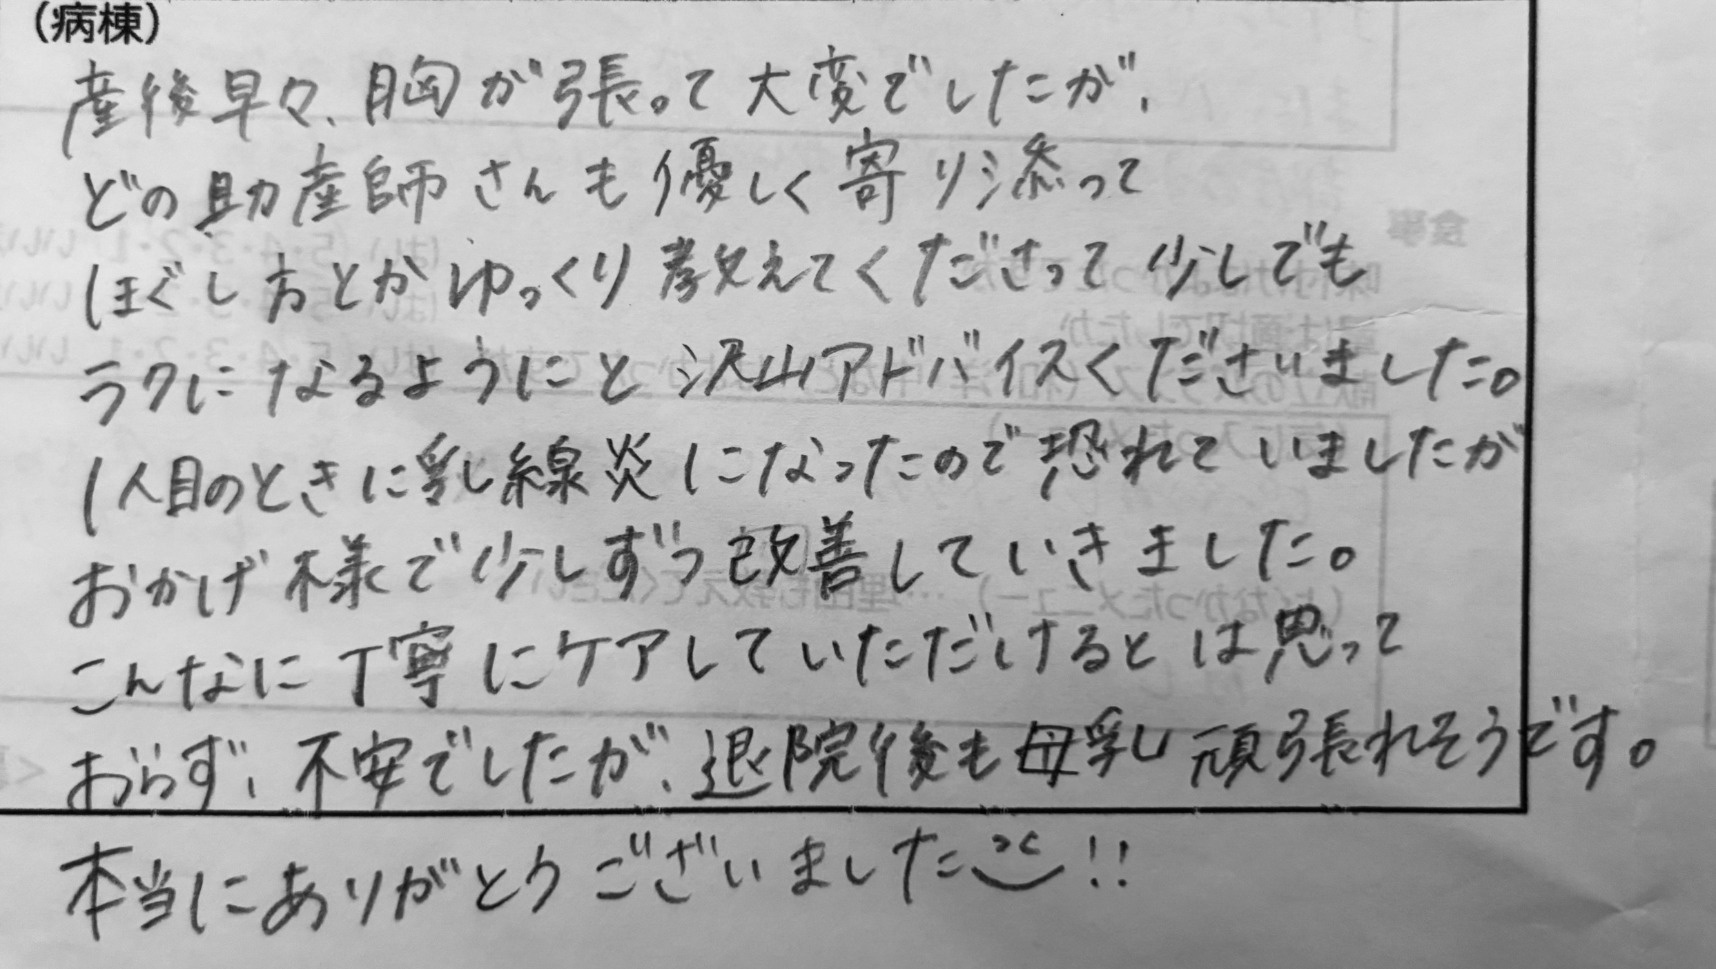 (病棟)
産後早々、胸が張って大変でしたが、
どの助産師さんも優しく寄り添って
ほぐし方とかゆっくり教えてくださって少しでも
ラクになるようにと沢山アドバイスくださいました。
1人目のときに乳線炎になったので恐れていましたが
おかげ様で少しずつ改善していきました。
こんなに丁寧にケアしていただけるとは思って
おらず、不安でしたが、退院後も母乳頑張れそうです。
本当にありがとうございました!!